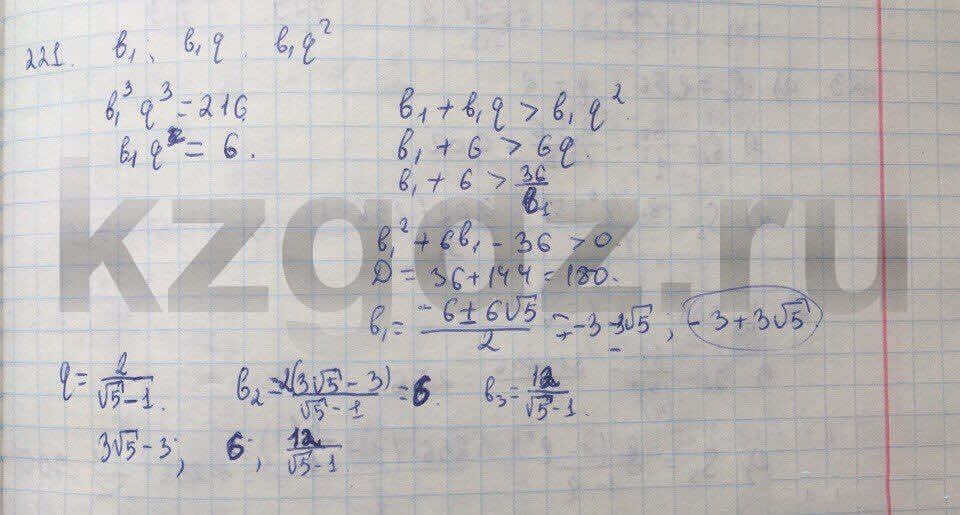 221. b₁; b₁q. b₁q²
b₁³q³ = 216
b₁q = 6.
b₁ + b₁q > b₁q².
b₁ + 6 > 6q.
b₁ + 6 > 36/b₁
b₁² + 6b₁ - 36 > 0.
D = 36 + 144 = 180.
b₁ = (-6 ± 6√5)/2 = -3 - 3√5; -3 + 3√5.
q = 2/(√5 - 1). b₂ = 2(3√5 - 3)/(√5 - 1) = 6. b₃ = 12/(√5 - 1).
3√5 - 3; 6; 12/(√5 - 1)
kzgdz.ru